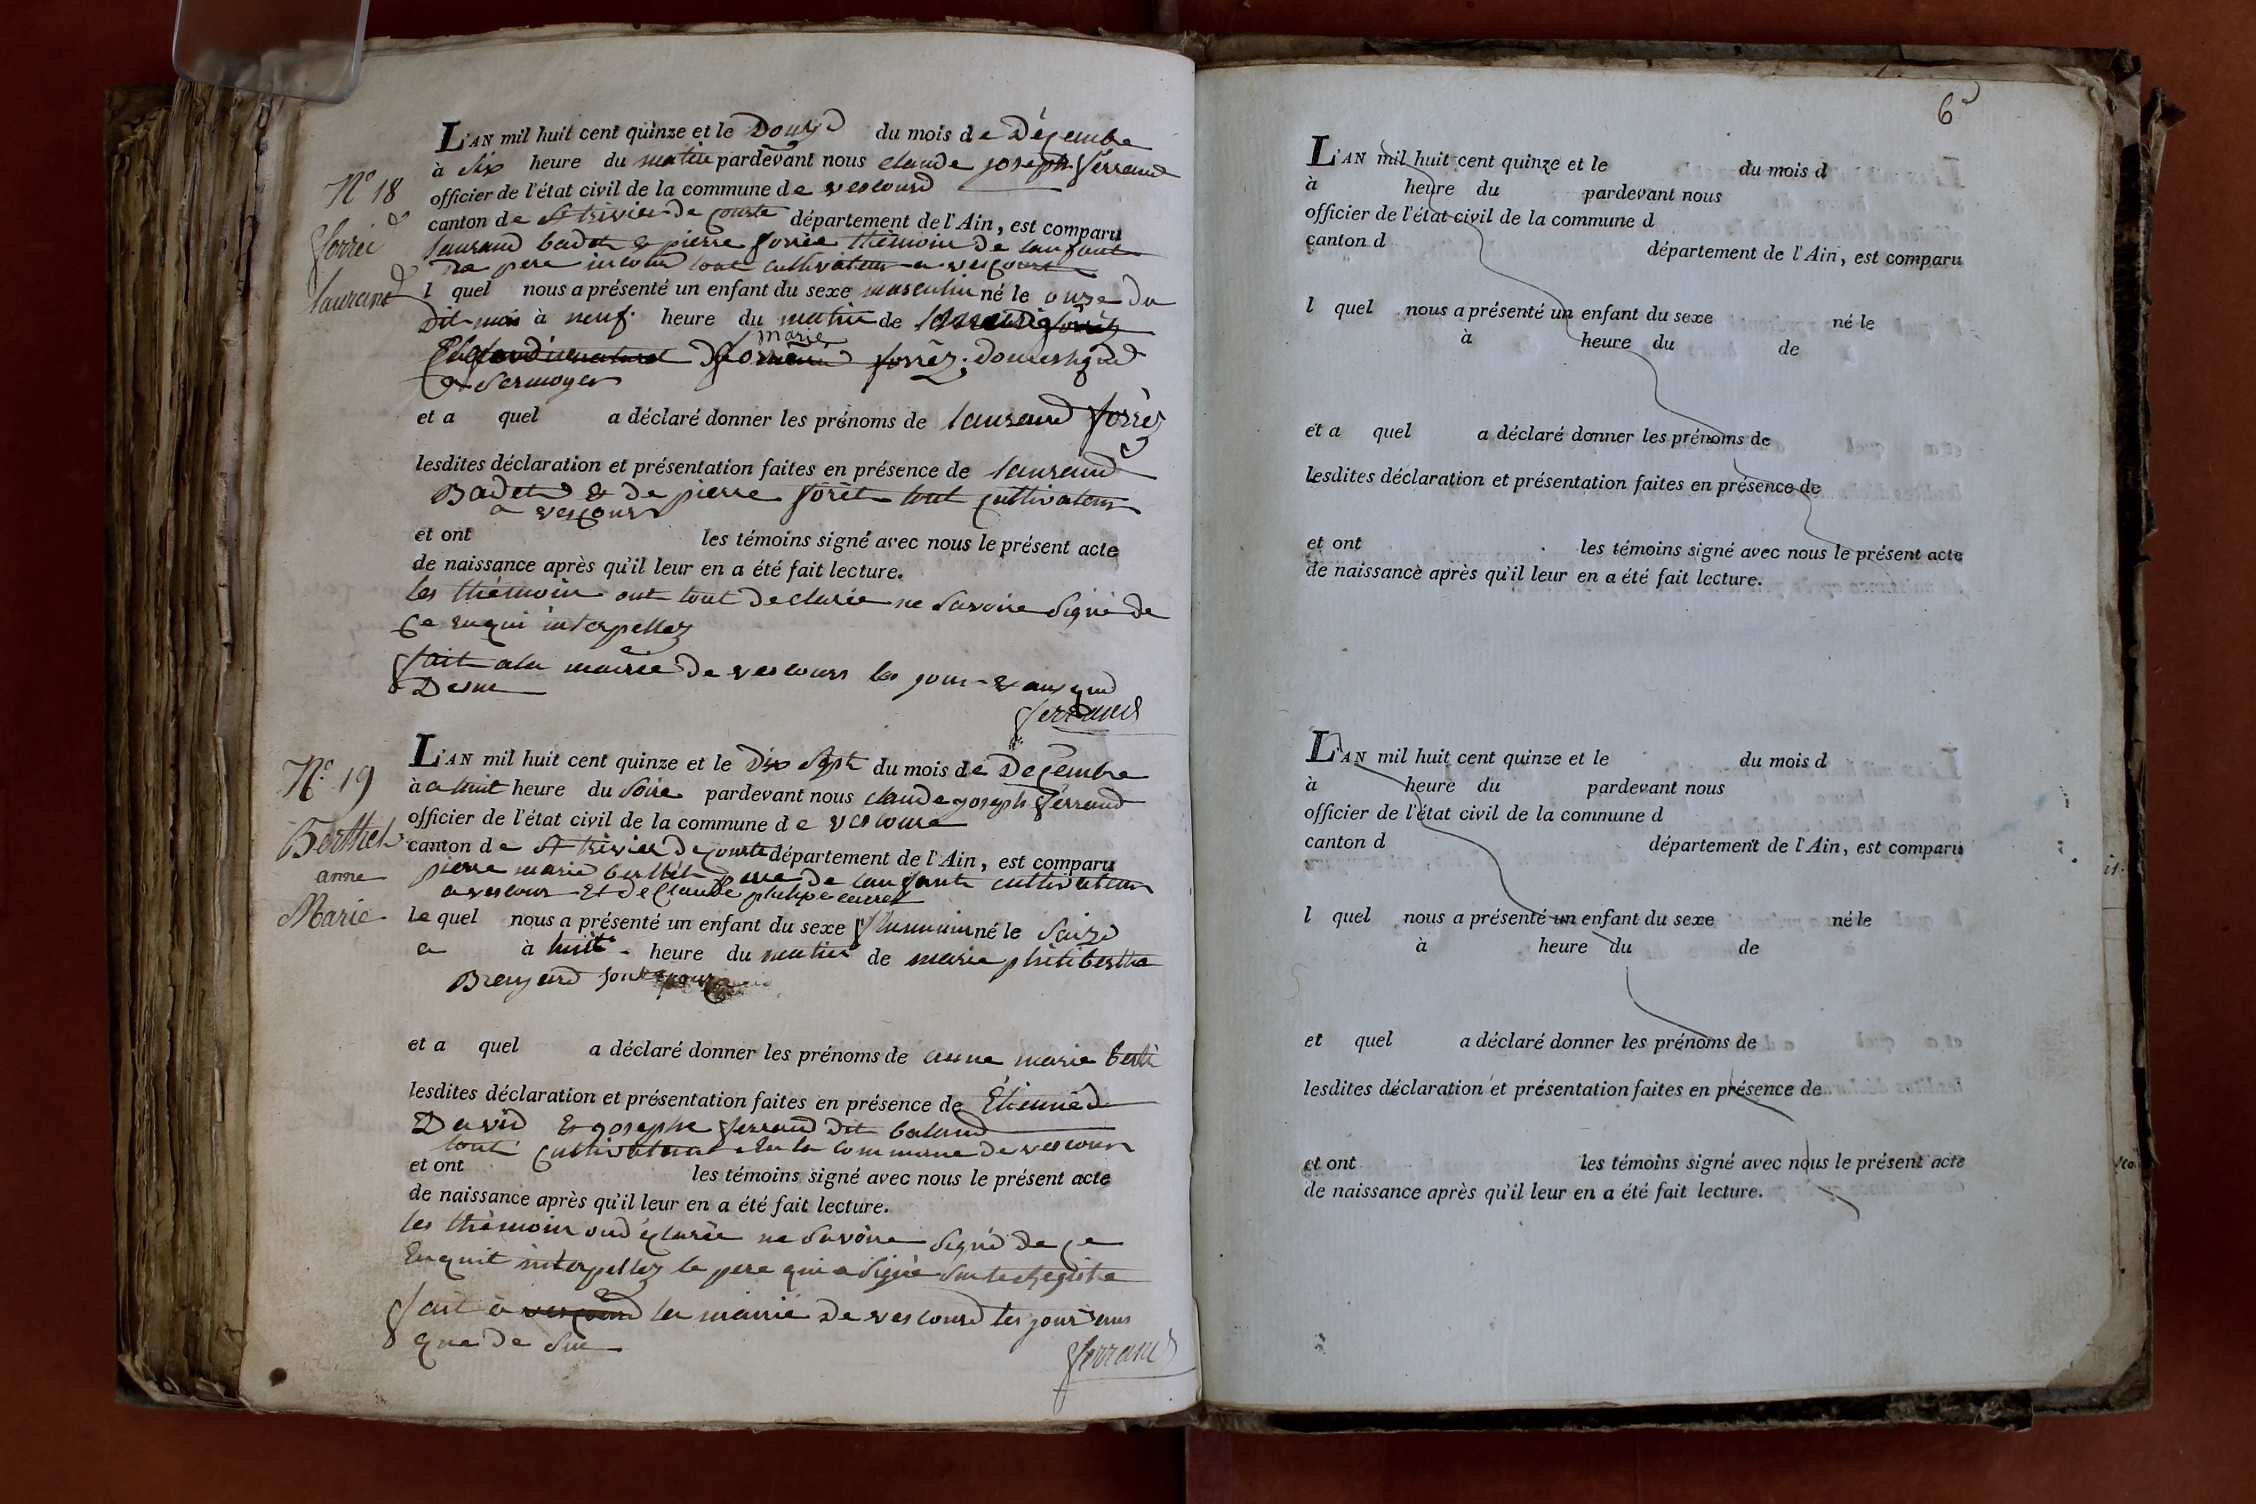 N° 18
Forrei
laurand
L'AN mil huit cent quinze et le Douze du mois de Décembre
à Six heure du matin pardevant nous claude joseph ferrand
officier de l'état civil de la commune de vescours
canton de St trivier de courte département de l'Ain, est comparu
laurand badet & pierre forrée thémoin de lanfant
pere inconu tout cultivateur a vescours
l quel nous a présenté un enfant du sexe masculin né le onze du
dit mois à neuf heure du matin de
marie forréz, domestique
a Sermoyer
et a quel a déclaré donner les prénoms de laurand forréz
lesdites déclaration et présentation faites en présence de laurand
Badet & de pierre forêt tout cultivateur
a vescours
et ont les témoins signé avec nous le présent acte
de naissance après qu'il leur en a été fait lecture.
les thémoin ont tout declarée ne Savoire Signé de
ce enqui interpellez
fait a la mairie de vescours les jour & an que
Desu
ferrand
N° 19
Berthet
anne
Marie
L'AN mil huit cent quinze et le Dix Sept du mois de Décembre
à a huit heure du Soire pardevant nous claude joseph ferrand
officier de l'état civil de la commune de vescours
canton de St trivier de courte département de l'Ain, est comparu
pierre marie berthet pere de lanfant cultivateur
a vescour et de Claude philipe carret
le quel nous a présenté un enfant du sexe né le Saize
a à huit heure du matin de marie philiberthe
Brenjard
et a quel a déclaré donner les prénoms de anne marie berte
lesdites déclaration et présentation faites en présence de Étienne
David & josephe ferrand dit baland
tout cultivateur en la commune de vescour
et ont les témoins signé avec nous le présent acte
de naissance après qu'il leur en a été fait lecture.
les thémoin ond éclarée ne Savoire Signé de ce
Enquit interpellez le pere qui a Signé Sur le Registre
fait à vescours la mairié de vescours les jour & ans
que de Su
ferrand
6
L'AN mil huit cent quinze et le du mois d
à heure du pardevant nous
officier de l'état civil de la commune d
canton d département de l'Ain, est comparu
l quel nous a présenté un enfant du sexe né le
à heure du de
et a quel a déclaré donner les prénoms de
lesdites déclaration et présentation faites en présence de
et ont les témoins signé avec nous le présent acte
de naissance après qu'il leur en a été fait lecture.
L'AN mil huit cent quinze et le du mois d
à heure du pardevant nous
officier de l'état civil de la commune d
canton d département de l'Ain, est comparu
l quel nous a présenté un enfant du sexe né le
à heure du de
et quel a déclaré donner les prénoms de
lesdites déclaration et présentation faites en présence de
et ont les témoins signé avec nous le présent acte
de naissance après qu'il leur en a été fait lecture.